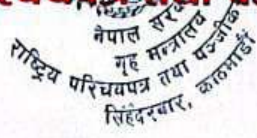 नेपाल सरकार
गृह मन्त्रालय
राष्ट्रिय परिचयपत्र तथा पञ्जीकरण
सिंहदरबार, काठमाडौं